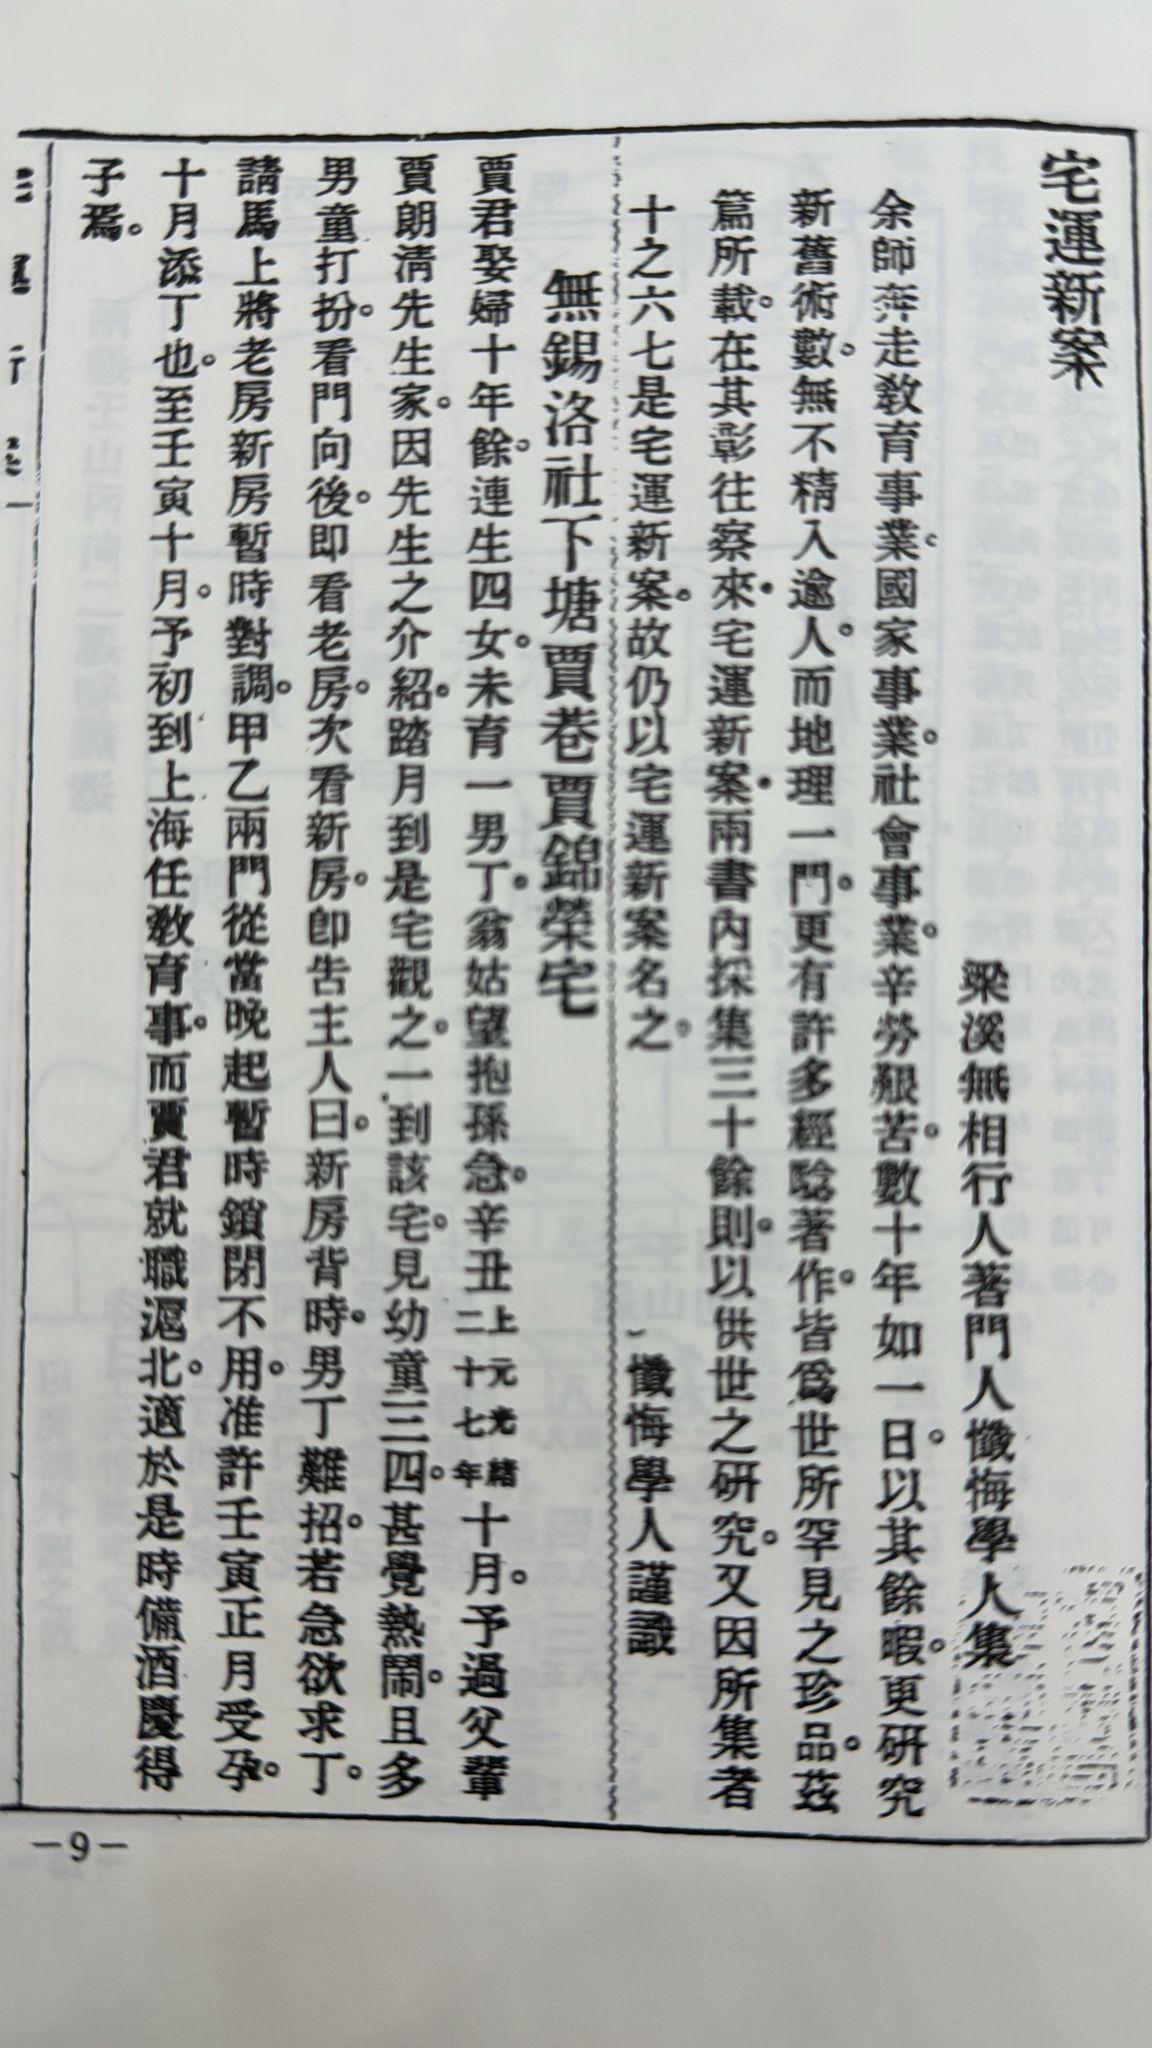 宅運新案
梁溪無相行人著門人懺悔學人集
余師奔走敎育事業。國家事業。社會事業。辛勞艱苦。數十年如一日。以其餘暇。更研究
新舊術數。無不精入逾人。而地理一門。更有許多經騐著作。皆爲世所罕見之珍品。茲
篇所載。在其彰往察來。宅運新案。兩書內採集三十餘則。以供世之研究。又因所集者
十之六七是宅運新案。故仍以宅運新案名之。
懺悔學人謹識
無錫洛社下塘賈巷賈錦榮宅
賈君娶婦十年餘。連生四女。未育一男丁。翁姑望抱孫急。辛丑上元光緒二十七年十月。予過父輩
賈朗淸先生家。因先生之介紹。踏月到是宅觀之。一到該宅。見幼童三四。甚覺熱鬧。且多
男童打扮。看門向後。即看老房。次看新房。卽告主人曰。新房背時。男丁難招。若急欲求丁。
請馬上將老房新房暫時對調。甲乙兩門從當晚起暫時鎖閉不用。准許壬寅正月受孕。
十月添丁也。至壬寅十月。予初到上海任敎育事。而賈君就職滬北。適於是時備酒慶得
子焉。
—9—